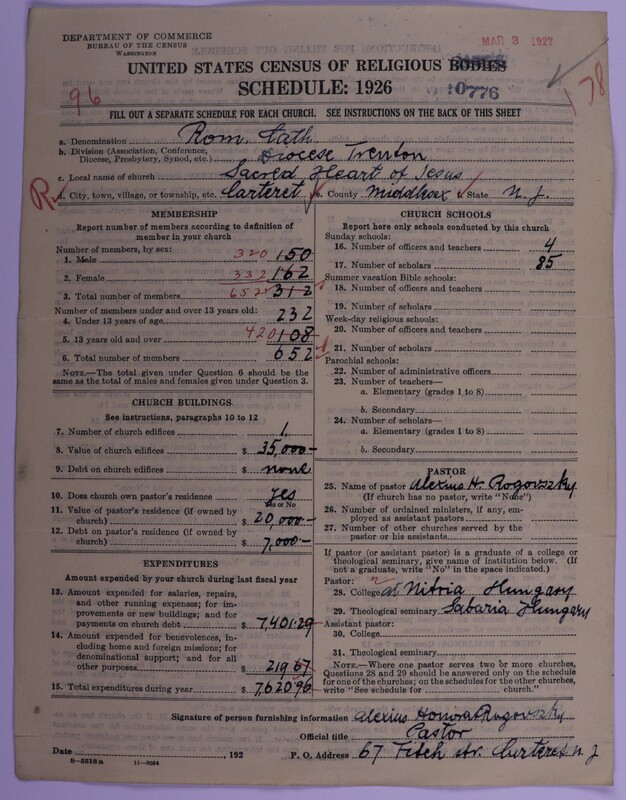 DEPARTMENT OF COMMERCE
BUREAU OF THE CENSUS
WASHINGTON
MAR 3 1927
UNITED STATES CENSUS OF RELIGIOUS BODIES
SCHEDULE: 1926
10776
96
178
FILL OUT A SEPARATE SCHEDULE FOR EACH CHURCH. SEE INSTRUCTIONS ON THE BACK OF THIS SHEET
a. Denomination Rom. Cath
b. Division (Association, Conference, Diocese, Presbytery, Synod, etc.) Diocese Trenton
c. Local name of church Sacred Heart of Jesus
R
d. City, town, village, or township, etc. Carteret e. County Middlesex f. State N. J.
MEMBERSHIP
Report number of members according to definition of
member in your church
Number of members, by sex:
1. Male 320 150
2. Female 332 162
3. Total number of members 652 312
Number of members under and over 13 years old:
4. Under 13 years of age 232
5. 13 years old and over 420 108
6. Total number of members 652
NOTE.—The total given under Question 6 should be
same as the total of males and females given under Question 3.
CHURCH BUILDINGS
See instructions, paragraphs 10 to 12
7. Number of church edifices 1
8. Value of church edifices $ 35,000.-
9. Debt on church edifices $ none
10. Does church own pastor's residence yes
Yes or No
11. Value of pastor's residence (if owned by
church) $ 20,000.-
12. Debt on pastor's residence (if owned by
church) $ 7,000.-
EXPENDITURES
Amount expended by your church during last fiscal year
13. Amount expended for salaries, repairs,
and other running expenses; for im-
provements or new buildings; and for
payments on church debt $ 7,401.29
14. Amount expended for benevolences, in-
cluding home and foreign missions; for
denominational support; and for all
other purposes $ 219.67
15. Total expenditures during year $ 7,620.96
CHURCH SCHOOLS
Report here only schools conducted by this church
Sunday schools:
16. Number of officers and teachers 4
17. Number of scholars 85
Summer vacation Bible schools:
18. Number of officers and teachers
19. Number of scholars
Week-day religious schools:
20. Number of officers and teachers
21. Number of scholars
Parochial schools:
22. Number of administrative officers
23. Number of teachers—
a. Elementary (grades 1 to 8)
b. Secondary
24. Number of scholars—
a. Elementary (grades 1 to 8)
b. Secondary
PASTOR
25. Name of pastor Alexius H. Rogovszky
(If church has no pastor, write "None")
26. Number of ordained ministers, if any, em-
ployed as assistant pastors
27. Number of other churches served by the
pastor or his assistants
If pastor (or assistant pastor) is a graduate of a college or
theological seminary, give name of institution below. (If
not a graduate, write "No" in the space indicated.)
Pastor:
28. College at Nitria Hungary
29. Theological seminary Sabaria Hungary
Assistant pastor:
30. College
31. Theological seminary
NOTE.—Where one pastor serves two or more churches,
Questions 28 and 29 should be answered only on the schedule
for one of the churches; on the schedules for the other churches,
write "See schedule for church."
Signature of person furnishing information Alexius Rogovszky
Official title Pastor
Date , 192 P. O. Address 67 Fitch str. Carteret N. J
8—5318a 11—9054